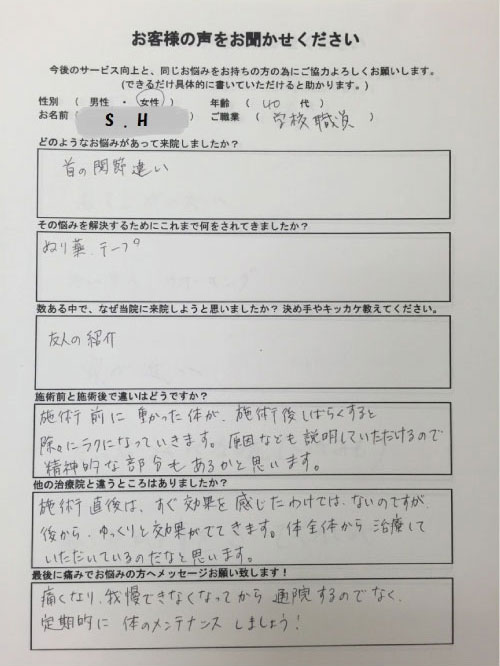 お客様の声をお聞かせください
今後のサービス向上と、同じお悩みをお持ちの方の為にご協力よろしくお願いします。
(できるだけ具体的に書いていただけると助かります。)
性別 ( 男性 ・ 女性 ) 年齢 ( 40 代 )
お名前 ( S.H ) ご職業 ( 学校職員 )
どのようなお悩みがあって来院しましたか？
首の関節違い
その悩みを解決するためにこれまで何をされてきましたか？
ぬり薬、テープ
数ある中で、なぜ当院に来院しようと思いましたか？決め手やキッカケ教えてください。
友人の紹介
施術前と施術後で違いはどうですか？
施術前に重かった体が、施術後しばらくすると
除々にラクになっていきます。原因なども説明していただけるので
精神的な部分もあるかと思います。
他の治療院と違うところはありましたか？
施術直後は、すぐ効果を感じたわけではないのですが、
後から、ゆっくりと効果がでてきます。体全体から治療して
いただいているのだなと思います。
最後に痛みでお悩みの方へメッセージお願い致します！
痛くなり、我慢できなくなってから通院するのでなく、
定期的に体のメンテナンスしましょう！